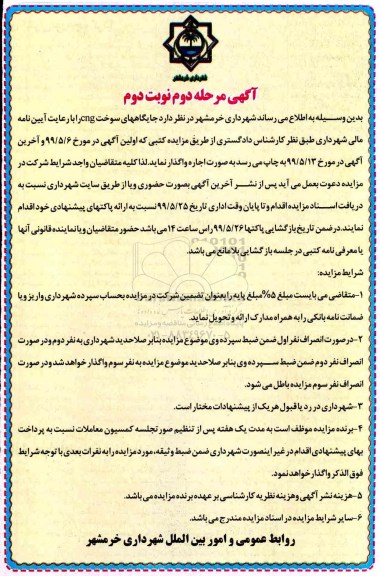 شهرداری خرمشهر
آگهی مرحله دوم نوبت دوم
بدین وسیله به اطلاع می رساند شهرداری خرمشهر در نظر دارد جایگاههای سوخت cng را با رعایت آیین نامه
مالی شهرداری طبق نظر کارشناس دادگستری از طریق مزایده کتبی که اولین آگهی در مورخ ۹۹/۵/۶ و آخرین
آگهی در مورخ ۹۹/۵/۱۳ به چاپ می رسد به صورت اجاره واگذار نماید. لذا کلیه متقاضیان واجد شرایط شرکت در
مزایده دعوت بعمل می آید پس از نشر آخرین آگهی بصورت حضوری و یا از طریق سایت شهرداری نسبت به
دریافت اسناد مزایده اقدام و تا پایان وقت اداری تاریخ ۹۹/۵/۲۵ نسبت به ارائه پاکتهای پیشنهادی خود اقدام
نمایند. در ضمن تاریخ بازگشایی پاکتها ۹۹/۵/۲۶ راس ساعت ۱۴ می باشد حضور متقاضیان و یا نماینده قانونی آنها
با معرفی نامه کتبی در جلسه بازگشایی بلامانع می باشد.
شرایط مزایده:
۱-متقاضی می بایست مبلغ ۵% مبلغ پایه را بعنوان تضمین شرکت در مزایده بحساب سپرده شهرداری واریز و یا
ضمانت نامه بانکی را به همراه مدارک ارائه و تحویل نماید.
۲-در صورت انصراف نفر اول ضمن ضبط سپرده وی موضوع مزایده بنابر صلاحدید شهرداری به نفر دوم و در صورت
انصراف نفر دوم ضمن ضبط سپرده وی بنابر صلاحدید موضوع مزایده به نفر سوم واگذار خواهد شد و در صورت
انصراف نفر سوم مزایده باطل می شود.
۳-شهرداری در رد یا قبول هر یک از پیشنهادات مختار است.
۴-برنده مزایده موظف است به مدت یک هفته پس از تنظیم صورتجلسه کمسیون معاملات نسبت به پرداخت
بهای پیشنهادی اقدام در غیر اینصورت شهرداری ضمن ضبط وثیقه، مورد مزایده را به نفرات بعدی با توجه شرایط
فوق الذکر واگذار خواهد نمود.
۵-هزینه نشر آگهی و هزینه نظریه کارشناسی بر عهده برنده مزایده می باشد.
۶-سایر شرایط مزایده در اسناد مزایده مندرج می باشد.
روابط عمومی و امور بین الملل شهرداری خرمشهر